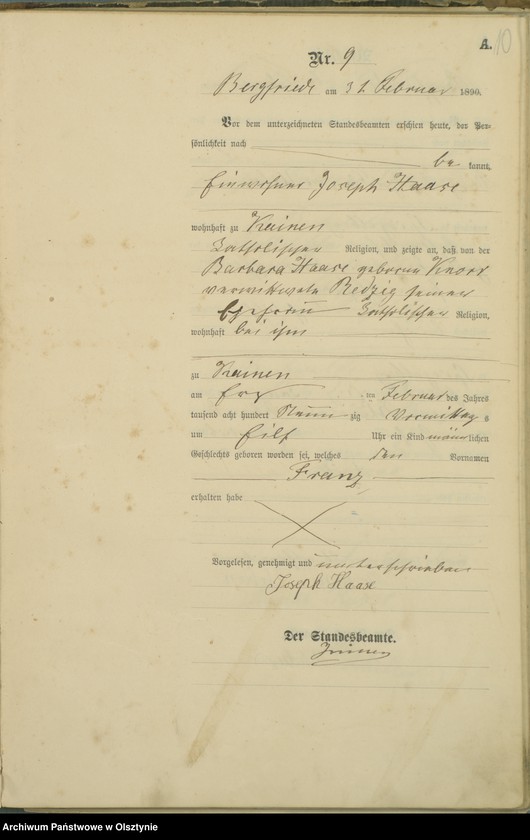 A. 10
Nr. 9
Bergfriede am Februar 1890.
Vor dem unterzeichneten Standesbeamten erschien heute, der Per-
sönlichkeit nach
be kannt,
Einwohner Joseph Haase
wohnhaft zu Kainen
katholischer Religion, und zeigte an, daß von der
Barbara Haase geborene Knorr
verwittwete seiner
Ehefrau katholischer Religion,
wohnhaft bei ihm
zu Kainen
am im Februar des Jahres
tausend acht hundert Neun zig Vormittags
um Eilf Uhr ein Kind männlichen
Geschlechts geboren worden sei, welches den Vornamen
Franz
erhalten habe
Vorgelesen, genehmigt und unterschrieben
Joseph Haase
Der Standesbeamte.
Archiwum Państwowe w Olsztynie